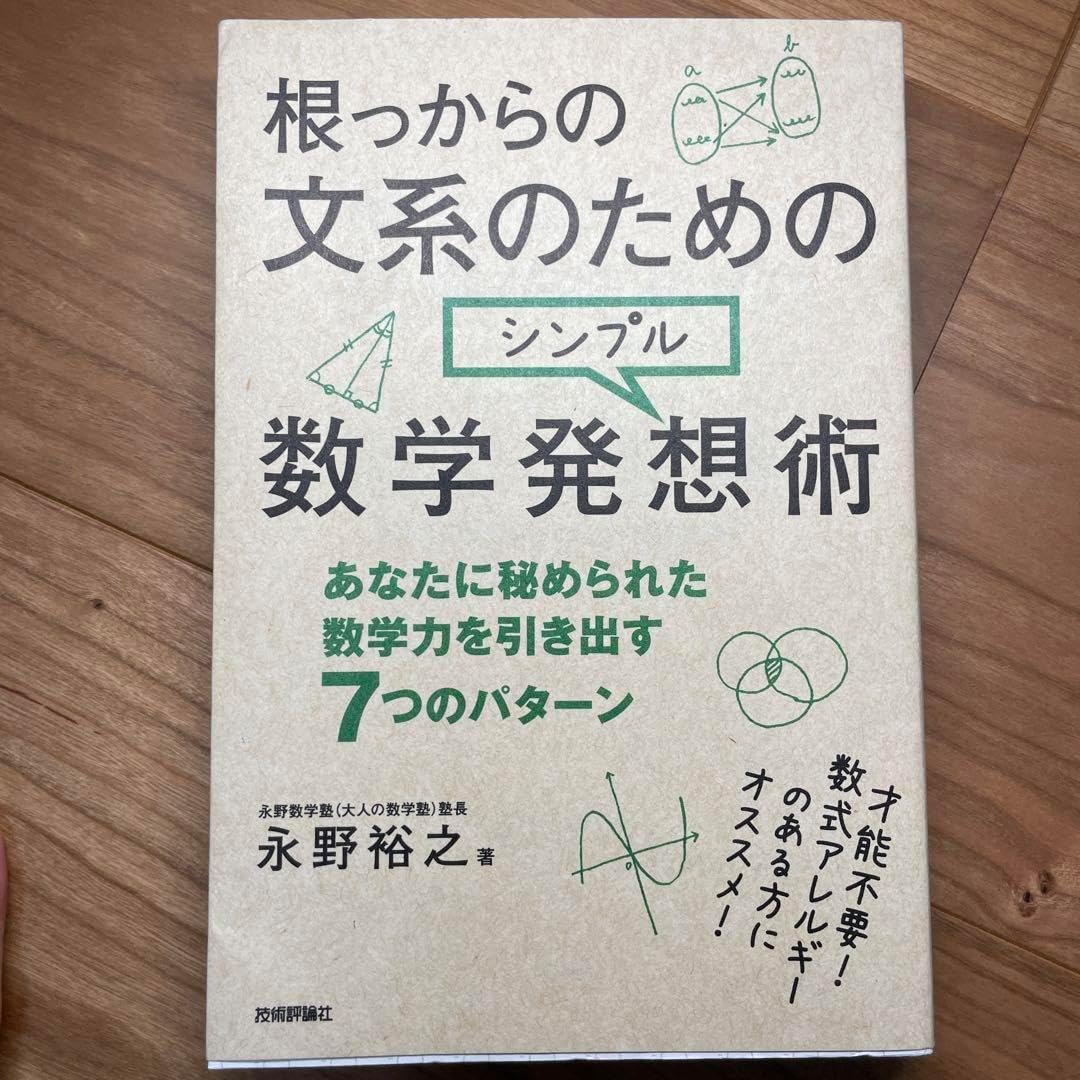 根っからの
文系のための
シンプル
数学発想術
あなたに秘められた
数学力を引き出す
7つのパターン
永野数学塾(大人の数学塾)塾長
永野裕之 著
才能不要!
数式アレルギー
のある方に
オススメ!
技術評論社
a
b